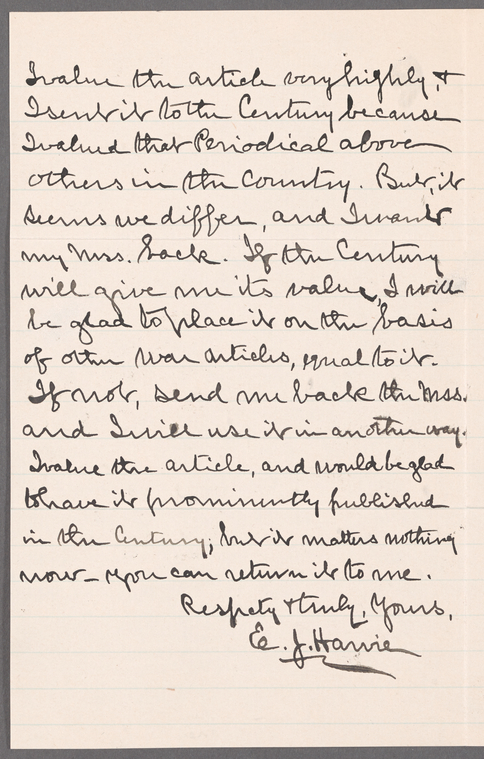 I value the article very highly, &
I sent it to the Century because
I valued that Periodical above
others in the Country. But, it
seems we differ, and I want
my Mss. back. If the Century
will give me its value, I will
be glad to place it on the basis
of other War articles, equal to it.
If not, send me back the Mss.
and I will use it in another way.
I value the article, and would be glad
to have it prominently published
in the Century; but it matters nothing
now - you can return it to me.
Respety & truly, Yours,
E. J. Harvie